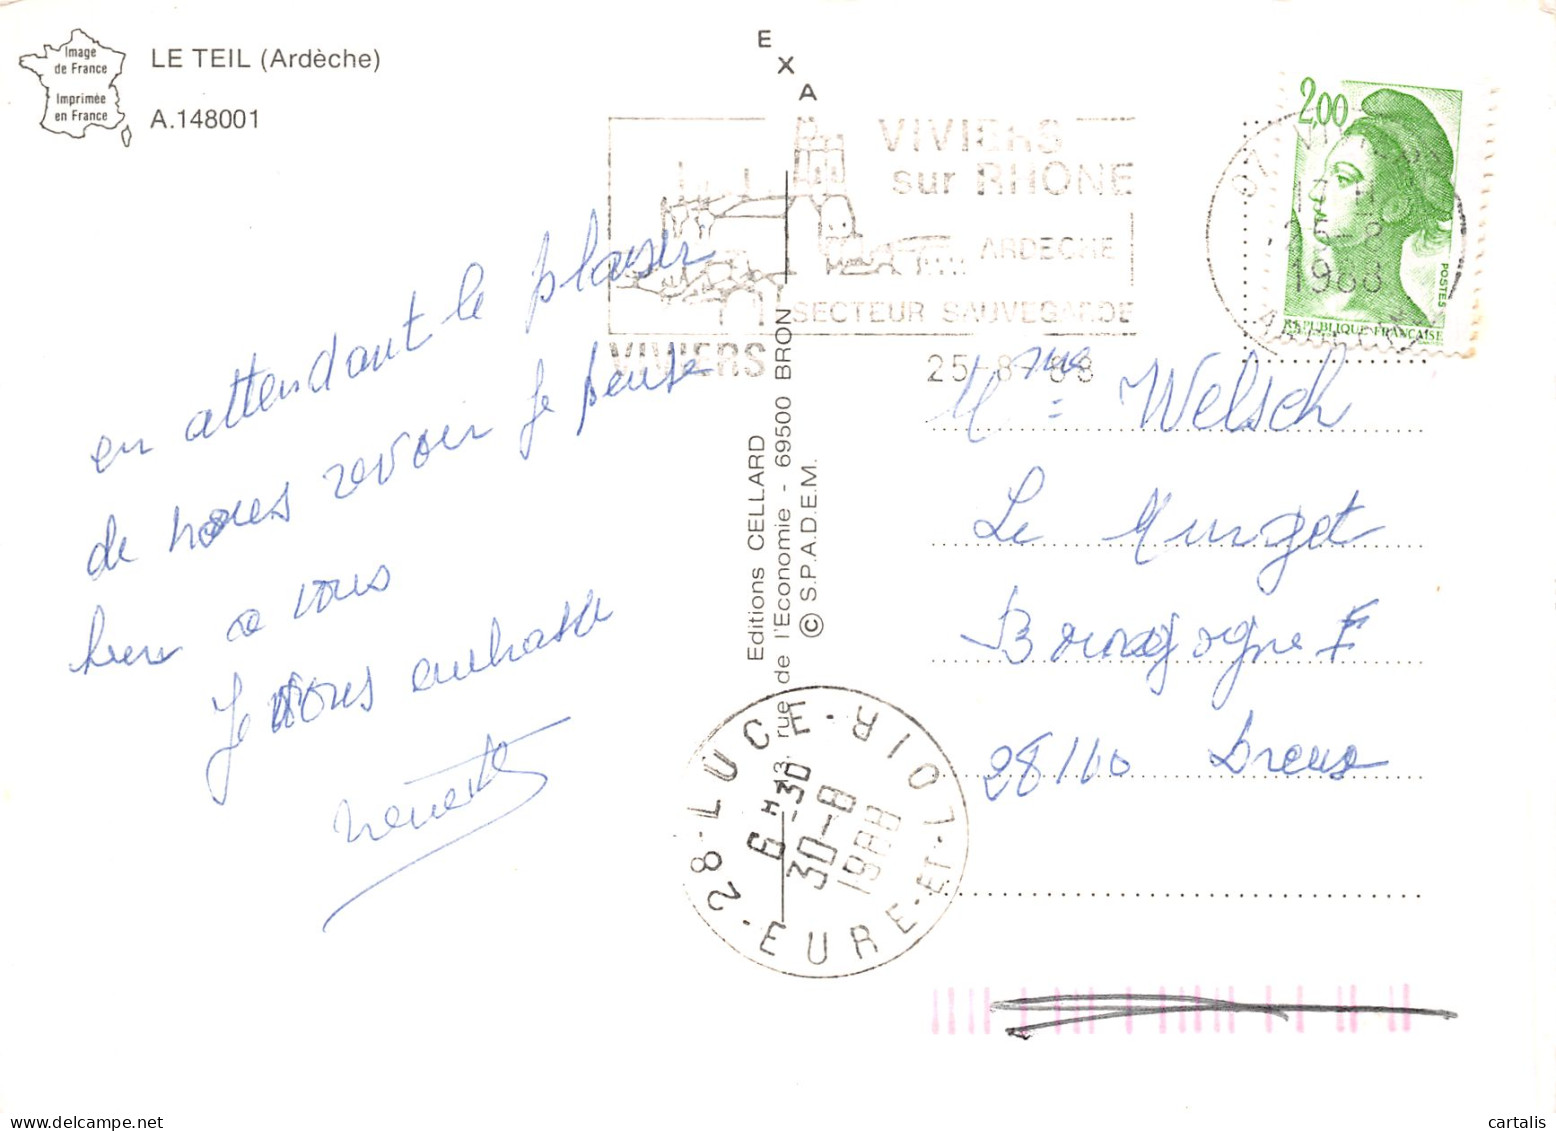 Image
de France
Imprimée
en France
LE TEIL (Ardèche)
A.148001
EXA
VIVIERS
sur RHÔNE
ARDECHE
SECTEUR SAUVEGARDE
VIVIERS
25-8-88
2,00
POSTES
REPUBLIQUE FRANÇAISE
25-8
1988
en attendant le plaisir
de nous revoir je pense
bien a vous
Je vous embrasse
Editions CELLARD
3, rue de l'Economie - 69500 BRON
© S.P.A.D.E.M.
Mme Welsch
Le Murget
Bourgogne F
28100 Dreux
28-LUCE-RIOT
EURE-ET-LOIR
6 H 30
30-8
1988
cartalis